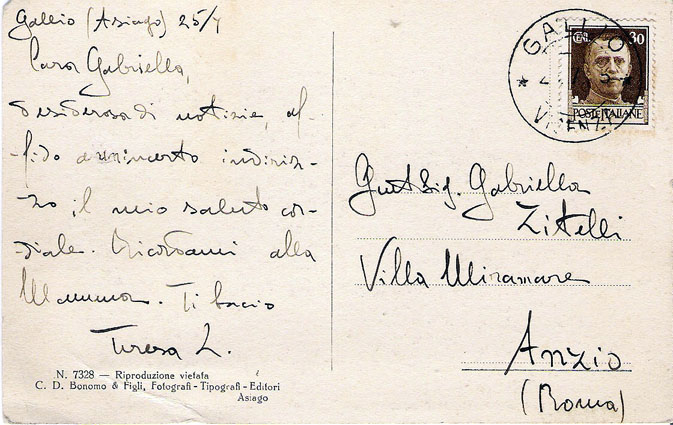 Gallio (Asiago) 25/7
Cara Gabriella,
desiderosa di notizie, af-
-fido a un incerto indiriz-
-zo il mio saluto cor-
-diale. Ricordami alla
Mamma. Ti bacio
Teresa L.
N. 7328 — Riproduzione vietata
C. D. Bonomo & Figli, Fotografi - Tipografi - Editori
Asiago
GALLIO
VICENZA
CENT. 30
POSTE ITALIANE
Gent Sig. Gabriella
Zitelli
Villa Miramare
Anzio
(Roma)